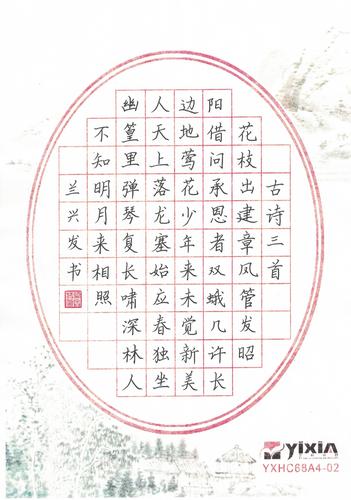 古诗三首
花枝出建章风管发昭
阳借问承恩者双蛾几许长
边地莺花少年来未觉新美
人天上落龙塞始应春独坐
幽篁里弹琴复长啸深林人
不知明月来相照
兰兴发书
yixin
YXHC68A4-02